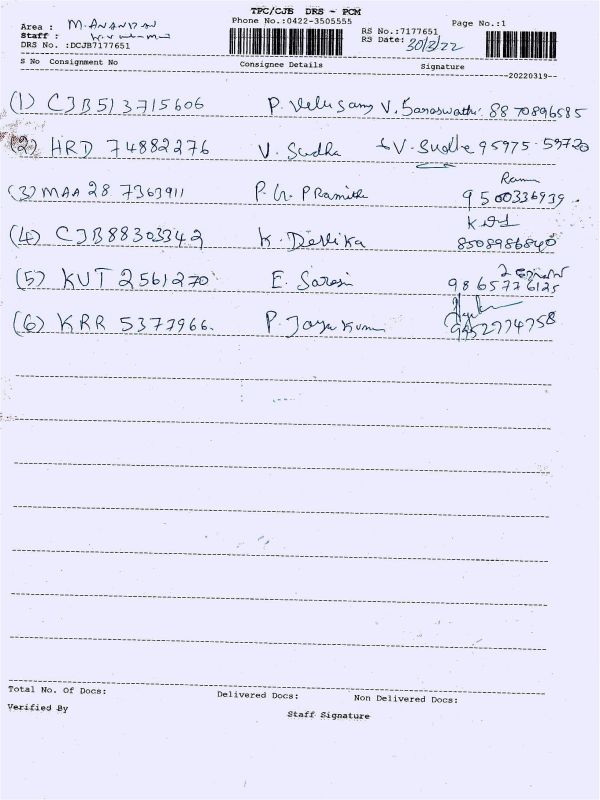 TPC/CJB DRS - PCM
Area : M.ANANDAN Phone No.:0422-3505555 Page No.:1
Staff : RS No.:7177651
DRS No. :DCJB7177651 RS Date: 30/3/22
S No Consignment No Consignee Details Signature
20220319
(1) CJB513715606 P. Velusamy V. Saraswathi 8870896585
(2) HRD 74882276 V. Sudha V. Sudha 95975 59720
(3) MAA 287363911 P. Pramith 9500336939
(4) CJB88303342 K. Devika 8508986840
(5) KUT 2561270 E. Saroji 9865776125
(6) KRR 5377966. P. Jayakumar 9952774758
Total No. Of Docs: Delivered Docs: Non Delivered Docs:
Verified By Staff Signature